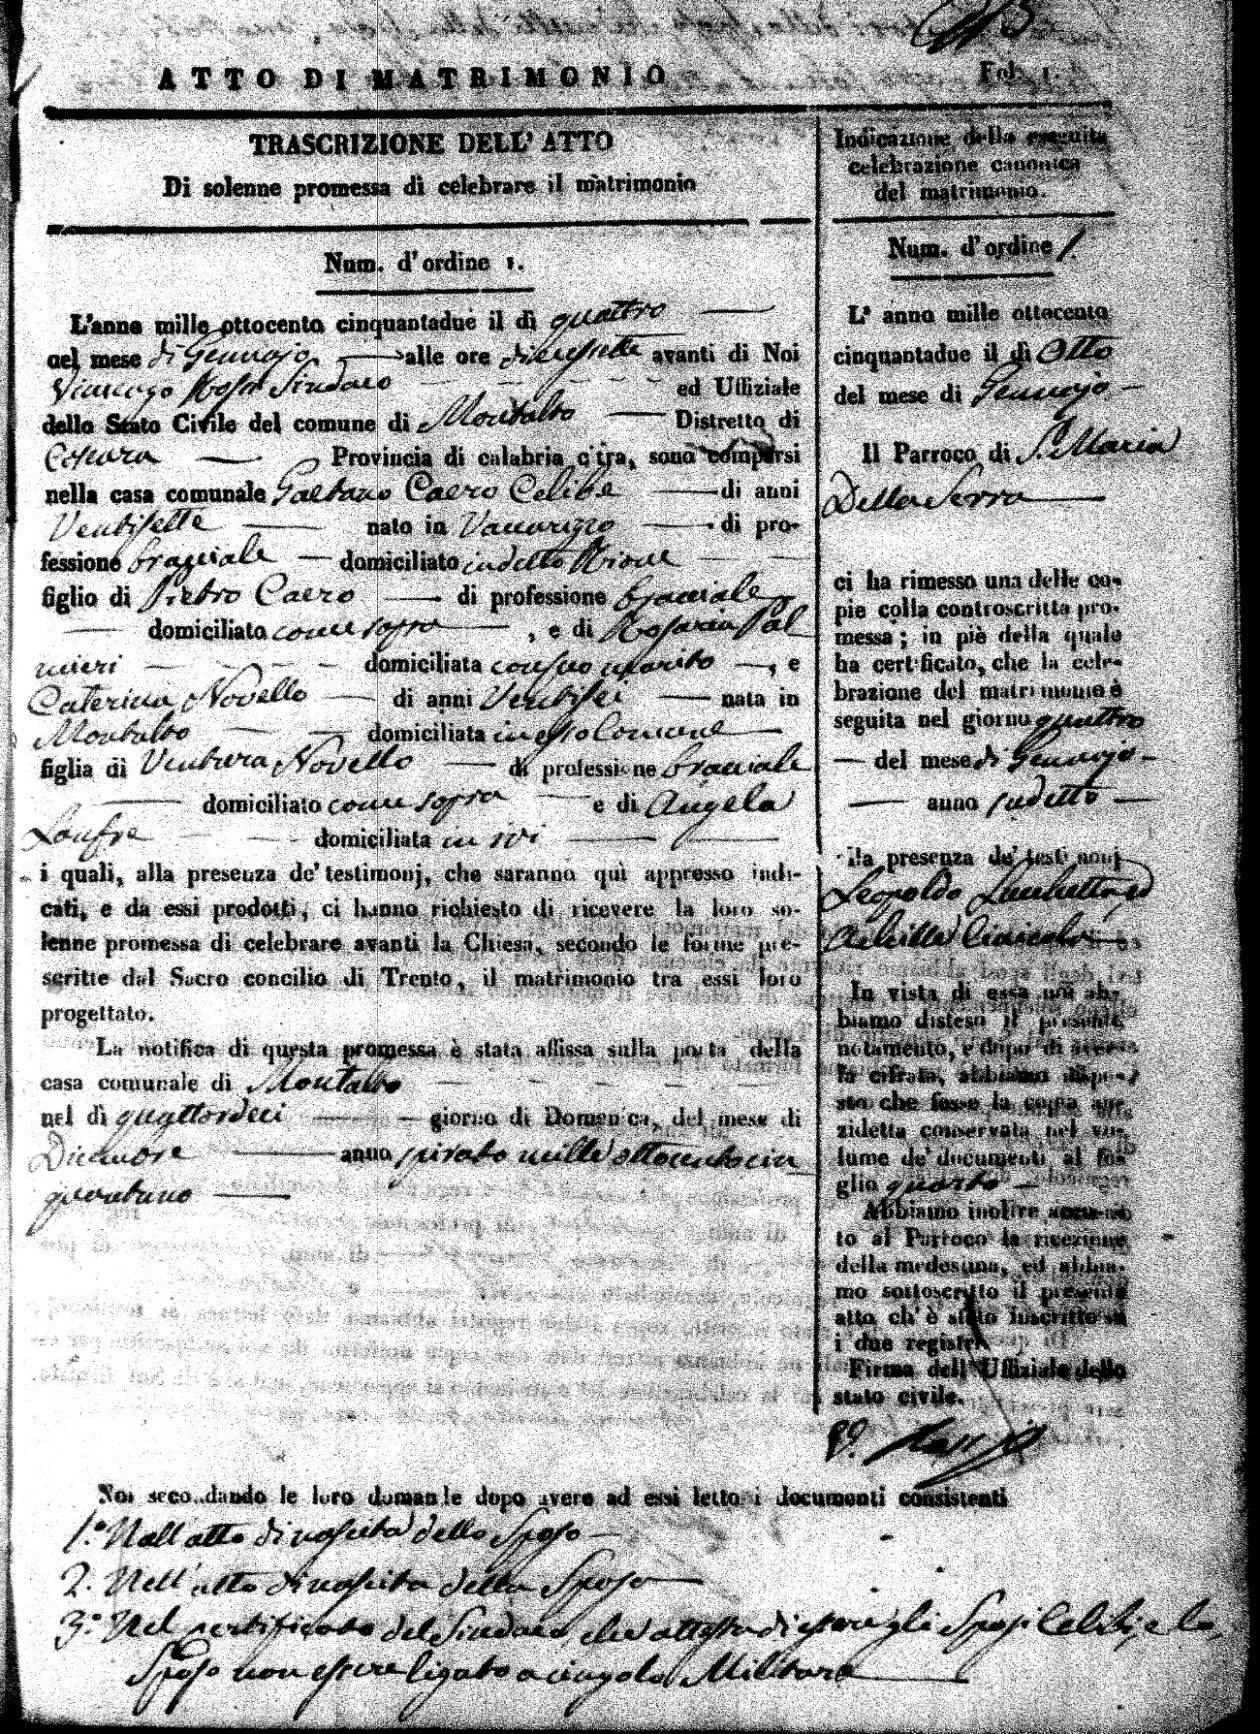 ATTO DI MATRIMONIO
Fol. 1.
TRASCRIZIONE DELL' ATTO
Di solenne promessa di celebrare il matrimonio
Num. d'ordine 1.
L'anno mille ottocento cinquantadue il dì quattro
nel mese di Gennajo alle ore diecisette avanti di Noi
Rossi Sindaco ed Uffiziale
dello Stato Civile del comune di Montalto Distretto di
Cosenza Provincia di calabria citra, sono comparsi
nella casa comunale Gaetano Caero Celibe di anni
Ventisette nato in Vaccarizzo di pro-
fessione bracciale domiciliato in detto Rione
figlio di Pietro Caero di professione bracciale
domiciliato come sopra , e di Rosaria Pal
mieri domiciliata con suo marito , e
Caterina Novello di anni Ventisei nata in
Montalto domiciliata in esso Comune
figlia di Ventura Novello di professione bracciale
domiciliato come sopra e di Angela
domiciliata in ivi
i quali, alla presenza de' testimonj, che saranno quì appresso indi-
cati, e da essi prodotti, ci hanno richiesto di ricevere la loro so-
lenne promessa di celebrare avanti la Chiesa, secondo le forme pre-
scritte dal Sacro concilio di Trento, il matrimonio tra essi loro
progettato.
La notifica di questa promessa è stata affissa sulla porta della
casa comunale di Montalto
nel dì quattordeci giorno di Domenica, del mese di
Dicembre anno spirato mille ottocentocin
quantuno
Indicazione della eseguita
celebrazione canonica
del matrimonio.
Num. d'ordine 1.
L' anno mille ottocento
cinquantadue il dì Otto
del mese di Gennajo
Il Parroco di S. Maria
Della Serra
ci ha rimesso una delle co-
pie colla controscritta pro-
messa; in piè della quale
ha certificato, che la cele-
brazione del matrimonio è
seguita nel giorno quattro
del mese di Gennajo
anno sudetto
alla presenza de' testimonj
Leopoldo
In vista di essa noi ab-
biamo disteso il presente
notamento, e dopo di averla
cifrata, abbiamo dispo-
sto che fosse la copia an-
zidetta conservata nel vo-
lume de' documenti al fo-
glio quarto
Abbiamo inoltre accusa-
to al Parroco la ricezione
della medesima, ed abbia-
mo sottoscritto il presente
atto, ch' è stato inscritto su
i due registri.
Firma dell' Uffiziale dello
stato civile.
Noi secondando le loro domande dopo avere ad essi letto i documenti consistenti
1.° Nell'atto di nascita dello Sposo
2. Nell'atto di nascita della Sposa
3.° Nel certificato del Sindaco che attesta di essere gli Sposi Celibi, e lo
Sposo non essere ligato a cingolo Militare